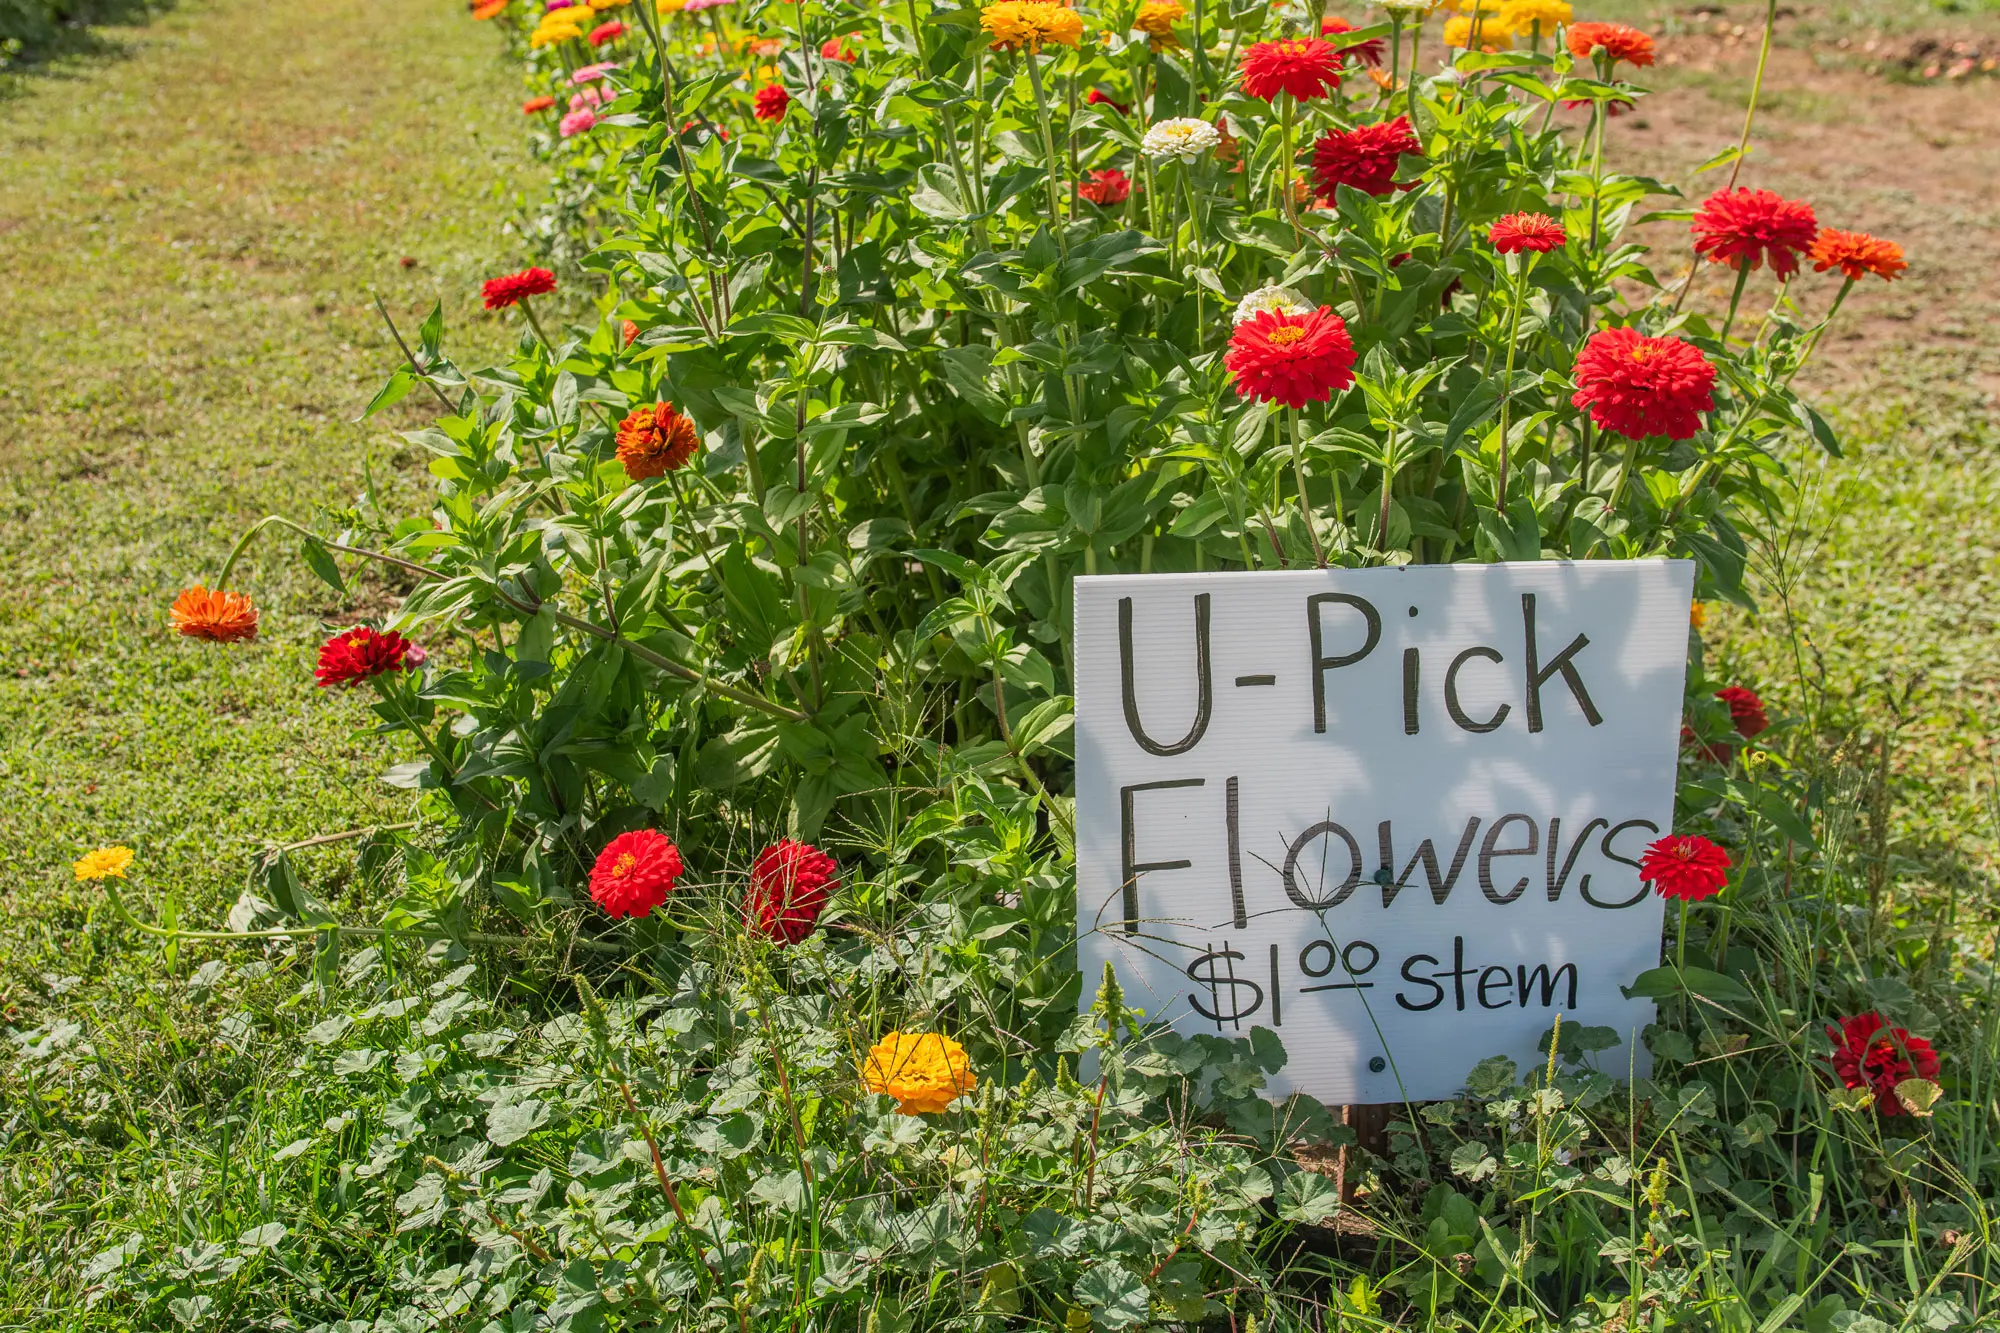 U-Pick
Flowers
$1.00 stem